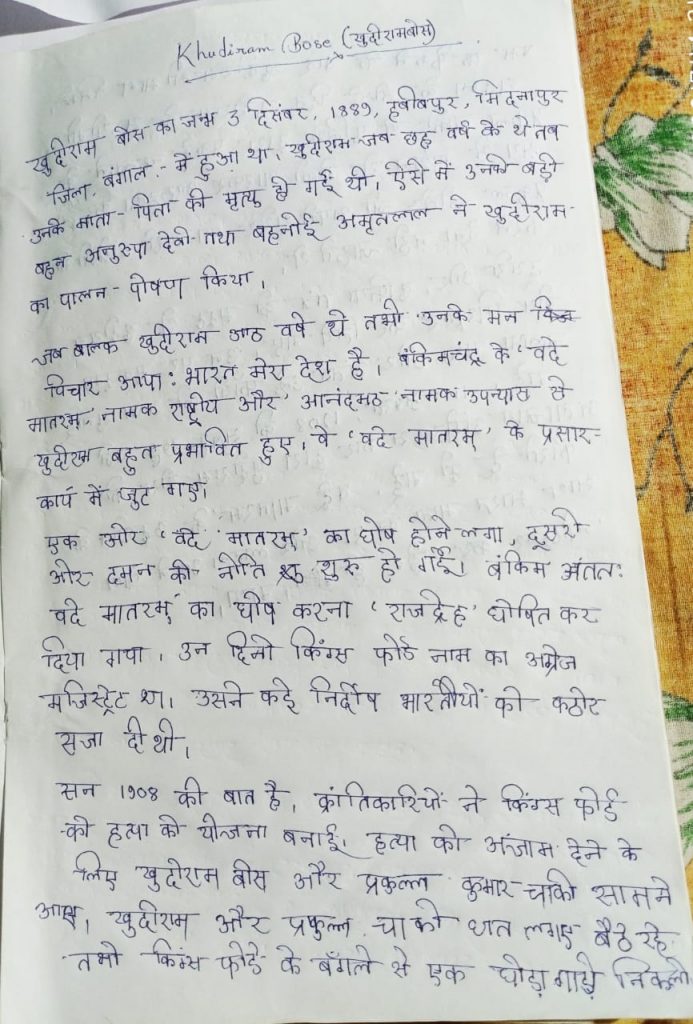 Khudiram Bose (खुदीरामबोस)
खुदीराम बोस का जन्म 3 दिसंबर, 1889, हबीबपुर, मिदनापुर
जिला, बंगाल में हुआ था। खुदीराम जब छह वर्ष के थे तब
उनके माता-पिता की मृत्यु हो गई थी, ऐसे में उनके बड़ी
बहन अनुरुपा देवी तथा बहनोई अमृतलाल ने खुदीराम
का पालन-पोषण किया।
जब बालक खुदीराम आठ वर्ष थे तभी उनके मन
विचार आया: भारत मेरा देश है। बंकिमचंद्र के 'वंदे
मातरम्' नामक राष्ट्रीय और 'आनंदमठ' नामक उपन्यास से
खुदीराम बहुत प्रभावित हुए। वे 'वंदे मातरम्' के प्रसार-
कार्य में जुट गए।
एक ओर 'वंदे मातरम्' का घोष होने लगा, दूसरी
ओर दमन की नीति शु शुरु हो गई। बंकिम अंततः
वंदे मातरम् का घोष करना 'राजद्रोह' घोषित कर
दिया गया। उन दिनो किंग्स फोर्ड नाम का अंग्रेज
मजिस्ट्रेट था। उसने कई निर्दोष भारतीयों को कठोर
सजा दी थी।
सन 1908 की बात है, क्रांतिकारियों ने किंग्स फोर्ड
की हत्या की योजना बनाई। हत्या को अंजाम देने के
लिए खुदीराम बोस और प्रफुल्ल कुमार चाकी सामने
आए, खुदीराम और प्रफुल्ल चाकी घात लगाए बैठे रहे
तभी किंग्स फोर्ड के बँगले से एक घोड़ा गाड़ी निकली